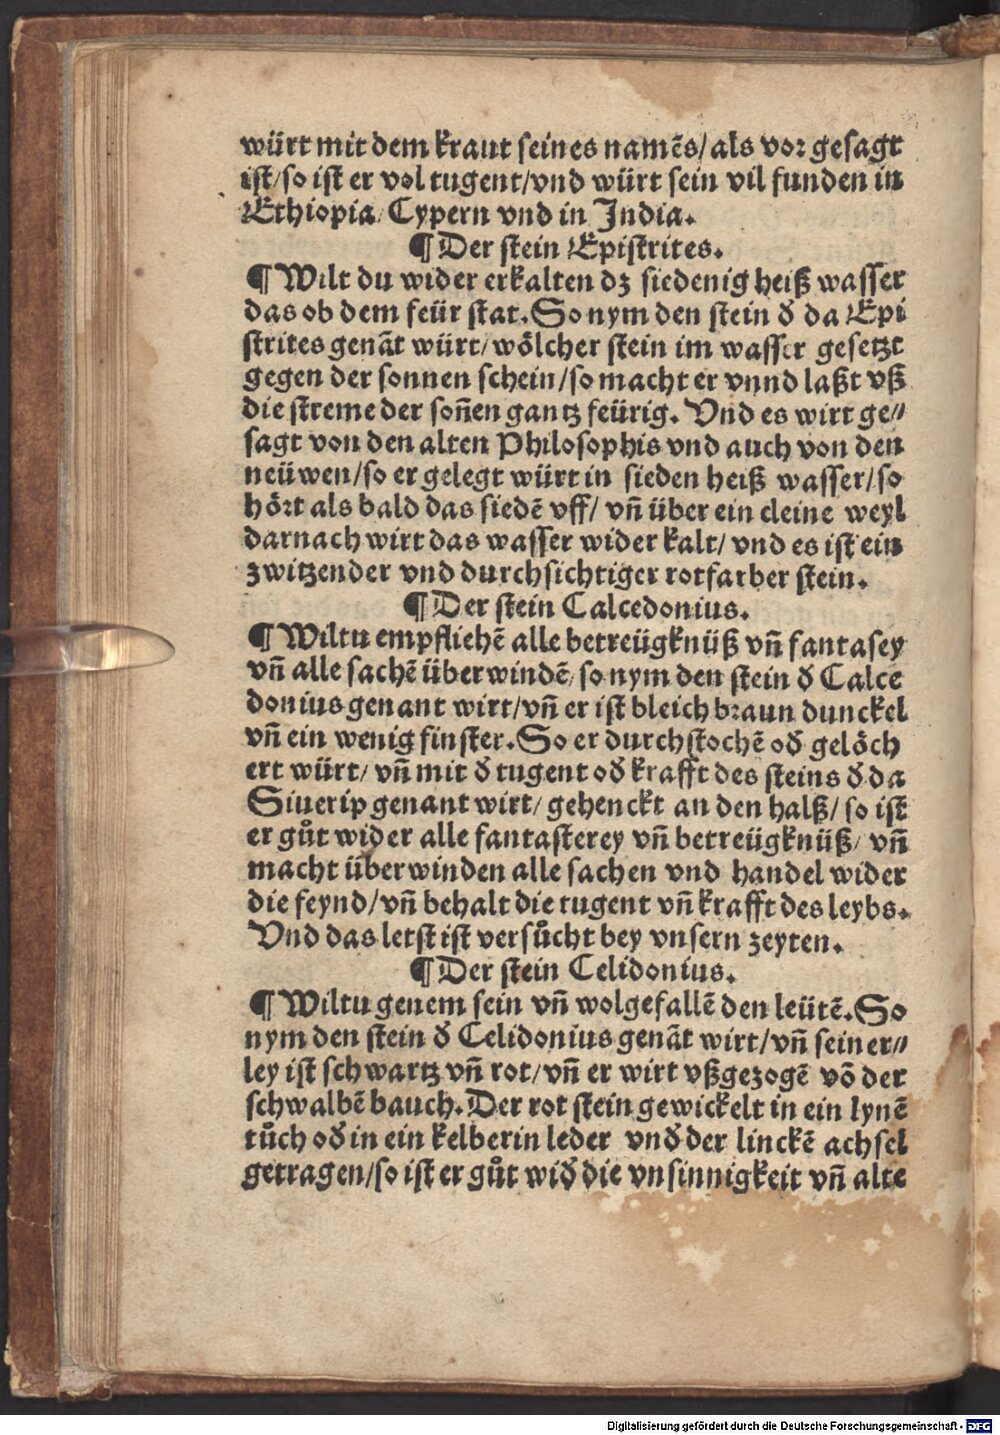 würt mit dem kraut seines namẽs/ als vor gesagt
ist/so ist er vol tugent/vnd würt sein vil funden in
Ethiopia/ Cypern vnd in India.
¶ Der stein Epistrites.
¶ Wilt du wider erkalten dz siedenig heiß wasser
das ob dem feür stat. So nym den stein d̕ da Epi
strites genãt würt/ wölcher stein im wasser gesetzt
gegen der sonnen schein/so macht er vnnd laßt vß
die streme der soñen gantz feürig. Vnd es wirt ge⸗
sagt von den alten Philosophis vnd auch von den
neüwen/so er gelegt würt in sieden heiß wasser/so
hört als bald das siedẽ vff/ vñ über ein cleine weyl
darnach wirt das wasser wider kalt/ vnd es ist ein
zwitzender vnd durchsichtiger rotfarber stein.
¶ Der stein Calcedonius.
¶ Wiltu empfliehẽ alle betreügknüß vñ fantasey
vñ alle sachẽ überwindẽ/ so nym den stein d̕ Calce
donius genant wirt/vñ er ist bleich braun dunckel
vñ ein wenig finster. So er durchstochẽ od̕ gelöch
ert würt/ vñ mit d̕ tugent od̕ krafft des steins d̕ da
Siuerip genant wirt/ gehenckt an den halß/ so ist
er gůt wider alle fantasterey vñ betreügknüß/ vñ
macht überwinden alle sachen vnd handel wider
die feynd/vñ behalt die tugent vñ krafft des leybs.
Vnd das letst ist versůcht bey vnsern zeyten.
¶ Der stein Celidonius.
¶ Wiltu genem sein vñ wolgefallẽ den leütẽ. So
nym den stein d̕ Celidonius genãt wirt/vñ seiner⸗
ley ist schwartz vñ rot/vñ er wirt vßgezogẽ võ der
schwalbẽ bauch. Der rot stein gewickelt in ein lynẽ
tůch od̕ in ein kelberin leder vnd̕ der linckẽ achsel
getragen/so ist er gůt wid̕ die vnsinnigkeit vñ alte
Digitalisierung gefördert durch die Deutsche Forschungsgemeinschaft - DFG